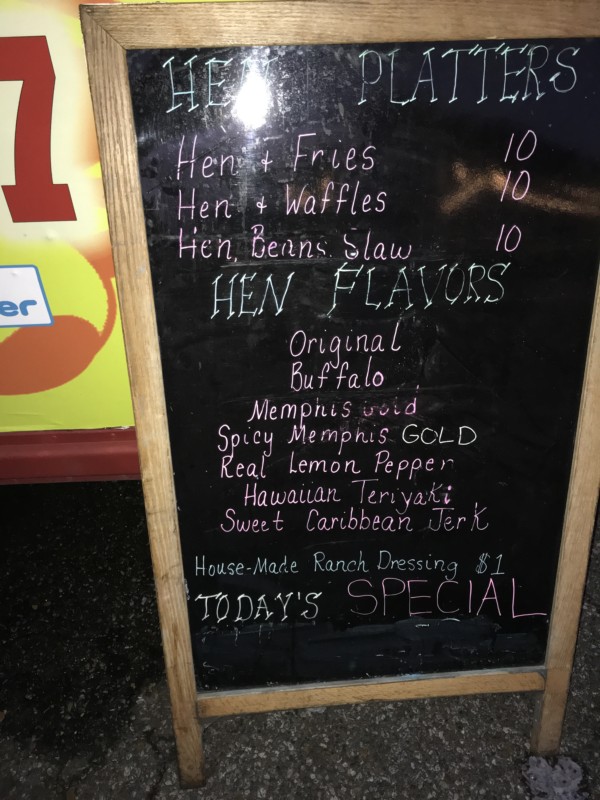 7
er
HEN PLATTERS
Hen & Fries 10
Hen & Waffles 10
Hen, Beans, Slaw 10
HEN FLAVORS
Original
Buffalo
Memphis Gold
Spicy Memphis GOLD
Real Lemon Pepper
Hawaiian Teriyaki
Sweet Caribbean Jerk
House-Made Ranch Dressing $1
TODAY'S SPECIAL